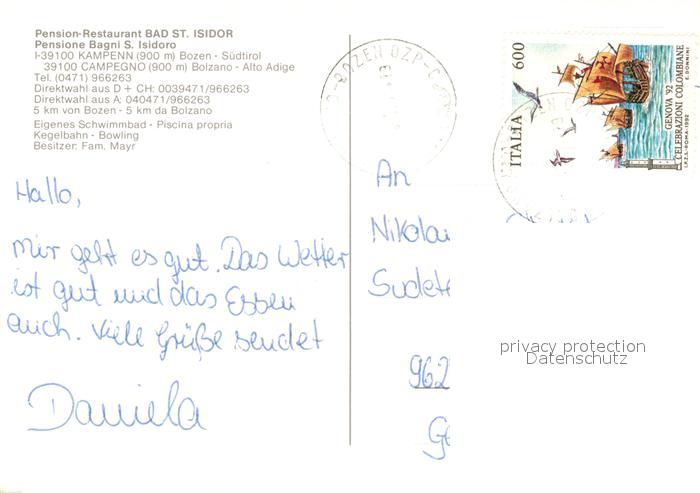 Pension-Restaurant BAD ST. ISIDOR
Pensione Bagni S. Isidoro
I-39100 KAMPENN (900 m) Bozen - Südtirol
39100 CAMPEGNO (900 m) Bolzano - Alto Adige
Tel. (0471) 966263
Direktwahl aus D + CH: 0039471/966263
Direktwahl aus A: 040471/966263
5 km von Bozen - 5 km da Bolzano
Eigenes Schwimmbad - Piscina propria
Kegelbahn - Bowling
Besitzer: Fam. Mayr
Hallo,
mir geht es gut. Das Wetter
ist gut und das Essen
auch. Viele Grüße sendet
Daniela
BOZEN
600
ITALIA
GENOVA '92
CELEBRAZIONI COLOMBIANE
E. DONNINI
I.P.Z.S.-ROMA-1992
An
Nikolai
Sudet
962
Ge
privacy protection
Datenschutz